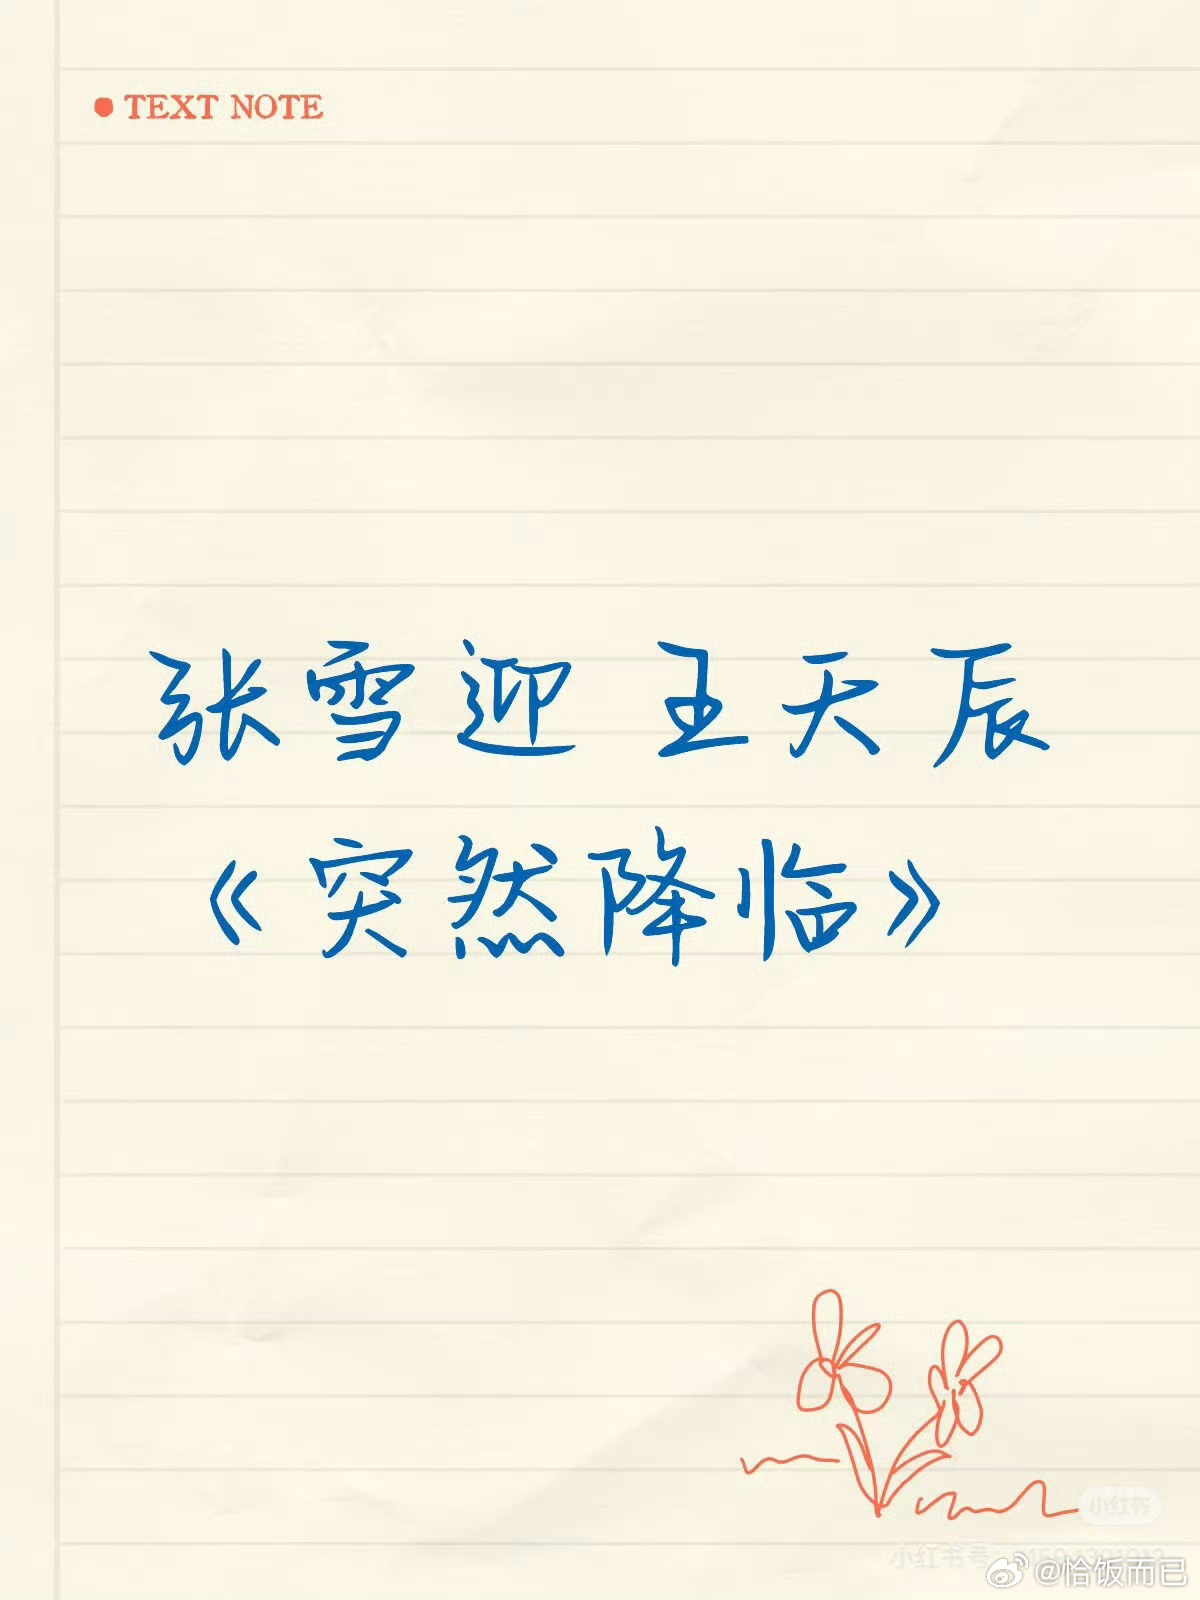 TEXT NOTE
张雪迎 王天辰
《突然降临》
小红书
小红书号:
@恰饭而已